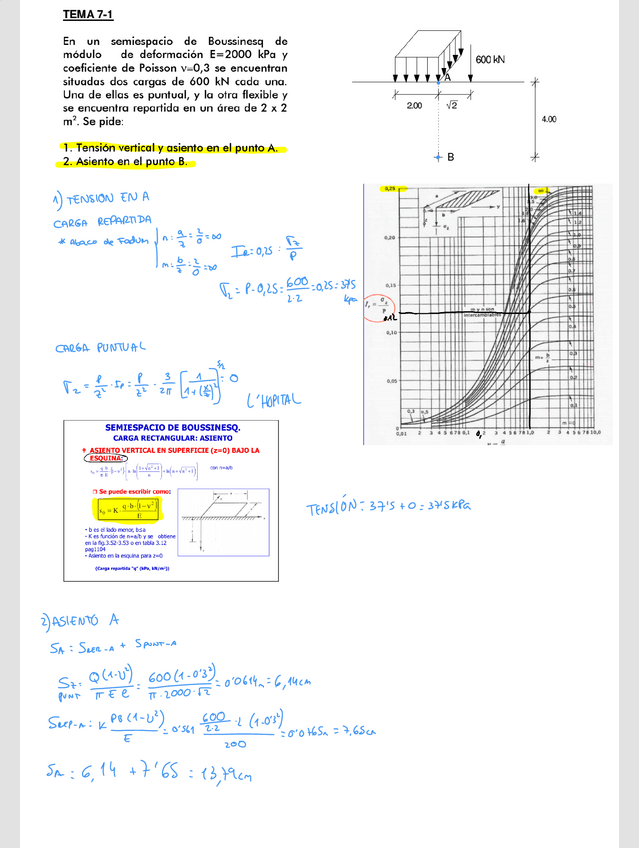 TEMA 7-1
En un semiespacio de Boussinesq de
módulo de deformación E=2000 kPa y
coeficiente de Poisson ν=0,3 se encuentran
situadas dos cargas de 600 kN cada una.
Una de ellas es puntual, y la otra flexible y
se encuentra repartida en un área de 2 x 2
m². Se pide:
1. Tensión vertical y asiento en el punto A.
2. Asiento en el punto B.
600 kN
A
2.00
√2
4.00
B
1) TENSION EN A
CARGA REPARTIDA
* Abaco de Fadum
n = a/z = 2/0 = ∞
m = b/z = 2/0 = ∞
I_R = 0,25 = σz/P
σz = P · 0,25 = 600/2·2 = 0,25 = 37'5 kpa
CARGA PUNTUAL
σz = P/z² · Ip = P/z² · 3/2π [1/1+(x/z)²]^5/2 = 0
L'HOPITAL
0,25
0,20
0,15
0,12
0,10
0,05
m y n son
intercambiables
SEMIESPACIO DE BOUSSINESQ.
CARGA RECTANGULAR: ASIENTO
ASIENTO VERTICAL EN SUPERFICIE (z=0) BAJO LA
ESQUINA:
con n=a/b
Se puede escribir como:
s₀ = K · q·b·(1−ν²)/E
• b es el lado menor, b≤a
• K es función de n=a/b y se obtiene
en la fig.3.52-3.53 o en tabla 3.12
pag1104
• Asiento en la esquina para z=0
(Carga repartida "q" (kPa, kN/m²))
TENSIÓN = 37'5 + 0 = 37'5 KPa
2) ASIENTO A
SA = SRER-A + SPUNT-A
Sz PUNT = Q(1-υ²)/π E e = 600(1-0'3²)/π·2000·√2 = 0'0614m = 6,14cm
SREP-A = K PB(1-υ²)/E = 0'561 600/2·2 · 2 (1-0'3²)/200 = 0'0765m = 7,65cm
SA = 6,14 + 7'65 = 13,79cm